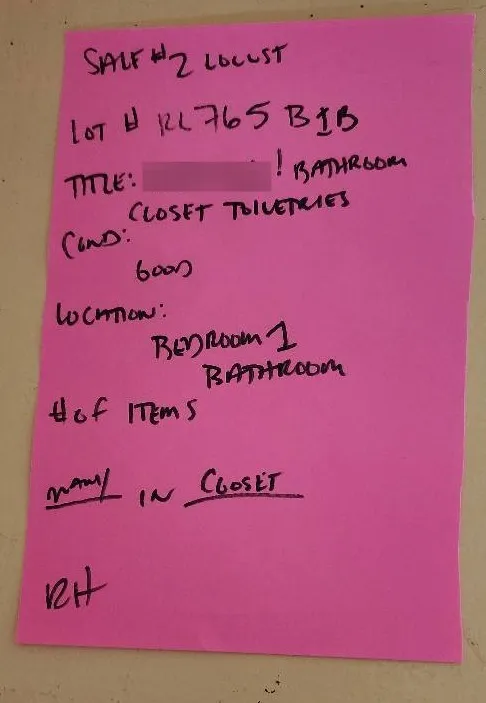 SALE # 2 LOCUST
LOT # RL765 B1B
TITLE: ! BATHROOM
CLOSET TOILETRIES
COND:
GOOD
LOCATION:
BEDROOM 1
BATHROOM
# OF ITEMS
MANY IN CLOSET
RH